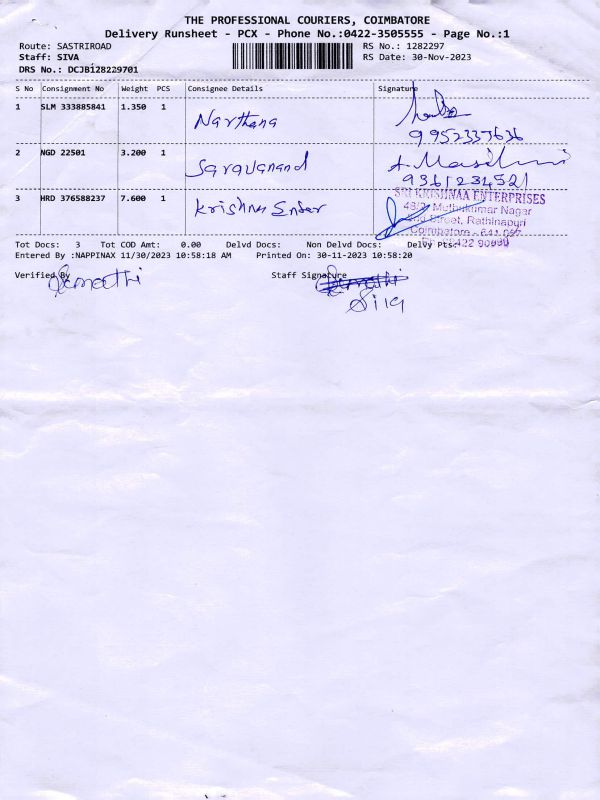 THE PROFESSIONAL COURIERS, COIMBATORE
Delivery Runsheet - PCX - Phone No.:0422-3505555 - Page No.:1
Route: SASTRIROAD RS No.: 1282297
Staff: SIVA RS Date: 30-Nov-2023
DRS No.: DCJB128229701
S No Consignment No Weight PCS Consignee Details Signature
1 SLM 333885841 1.350 1 Narthana
9952337636
2 NGD 22501 3.200 1 Saravanand A.
9361234521
3 HRD 376588237 7.600 1 Krishna Enter
SRI KRISHNAA ENTERPRISES
48/2, Muthukumar Nagar
Street, Rathinapuri
Coimbatore - 641 027
Tot Docs: 3 Tot COD Amt: 0.00 Delvd Docs: Non Delvd Docs: Delvy Pts:
Entered By :NAPPINAX 11/30/2023 10:58:18 AM Printed On: 30-11-2023 10:58:20
Verified By Staff Signature
Siva